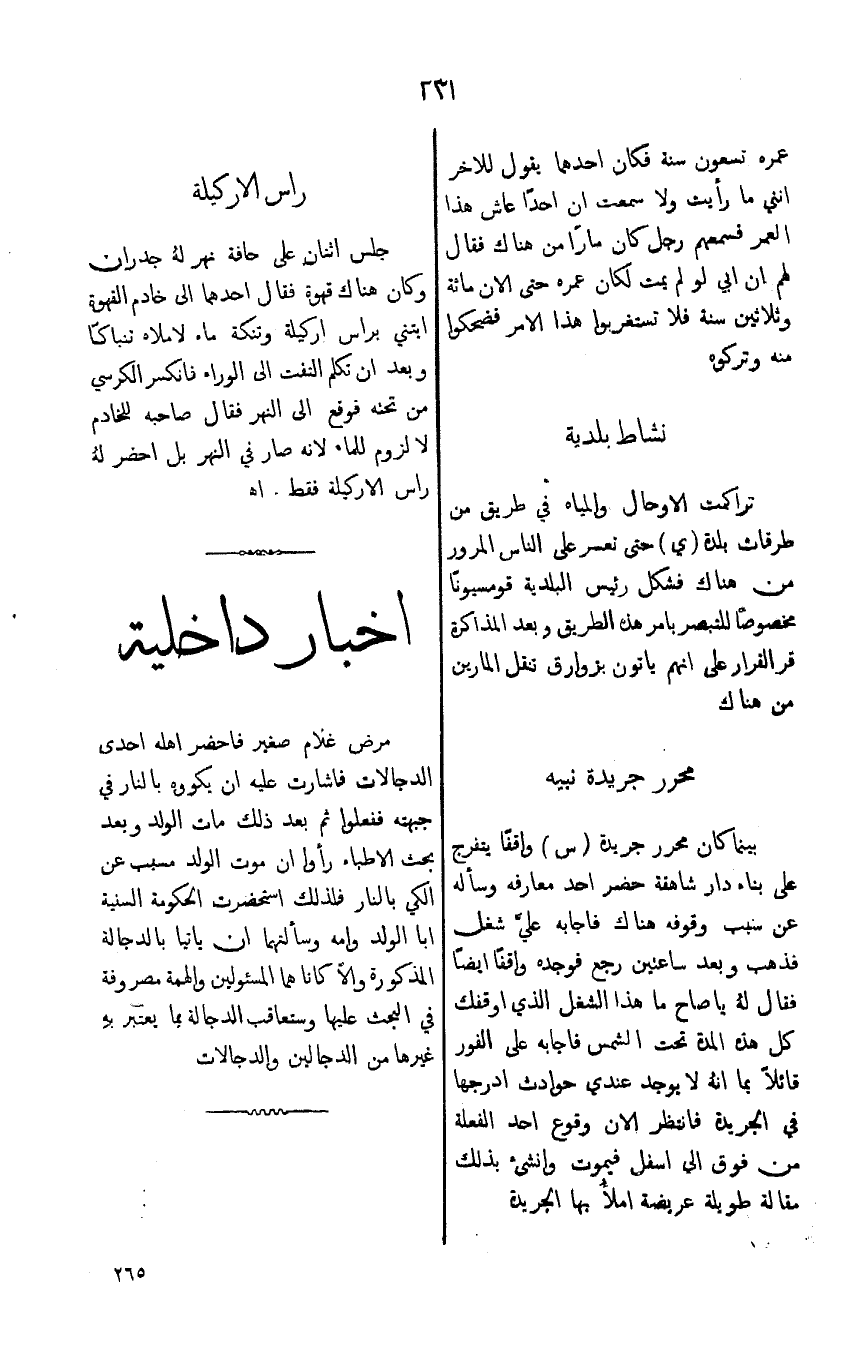 ٢٣١
عمره تسعون سنة فكان احدهما يقول للاخر
انني ما رأيت ولا سمعت ان احدًا عاش هذا
العمر فسمعهم رجل كان مارًا من هناك فقال
لهم ان ابي لو لم يمت لكان عمره حتى الان مائة
وثلاثين سنة فلا تستغربوا هذا الامر فضحكوا
منه وتركوه
نشاط بلدية
تراكمت الاوحال والمياه في طريق من
طرقات بلدة (ي) حتى تعسر على الناس المرور
من هناك فشكل رئيس البلدية قومسيونًا
مخصوصًا للتبصر بامر هذه الطريق وبعد المذاكرة
قر القرار على انهم ياتون بزوارق تنقل المارين
من هناك
محرر جريدة نبيه
بينما كان محرر جريدة (س) واقفًا يتفرج
على بناء دار شاهقة حضر احد معارفه وسأله
عن سبب وقوفه هناك فاجابه عليّ شغل
فذهب وبعد ساعتين رجع فوجده واقفًا ايضًا
فقال لهُ ياصاح ما هذا الشغل الذي اوقفك
كل هذه المدة تحت الشمس فاجابه على الفور
قائلاً بما انهُ لا يوجد عندي حوادث ادرجها
في الجريدة فانتظر الان وقوع احد الفعلة
من فوق الى اسفل فيموت وانشئ بذلك
مقالة طويلة عريضة املأ بها الجريدة
راس الاركيلة
جلس اثنان على حافة نهر لهُ جدران
وكان هناك قهوة فقال احدهما الى خادم القهوة
ايتني براس اركيلة وتنكة ماء لاملاه تنباكًا
وبعد ان تكلم التفت الى الوراء فانكسر الكرسي
من تحته فوقع الى النهر فقال صاحبه للخادم
لا لزوم للماء لانه صار في النهر بل احضر لهُ
راس الاركيلة فقط . اه
اخبار داخلية
مرض غلام صغير فاحضر اهله احدى
الدجالات فاشارت عليه ان يكووه بالنار في
جبهته ففعلوا ثم بعد ذلك مات الولد وبعد
بحث الاطباء رأوا ان موت الولد مسبب عن
الكي بالنار فلذلك استحضرت الحكومة السنية
ابا الولد وامه وسألتهما ان ياتيا بالدجالة
المذكورة والاّ كانا هما المسئولين والهمة مصروفة
في البحث عليها وستعاقب الدجالة بما يعتبر بهِ
غيرها من الدجالين والدجالات
٢٦٥